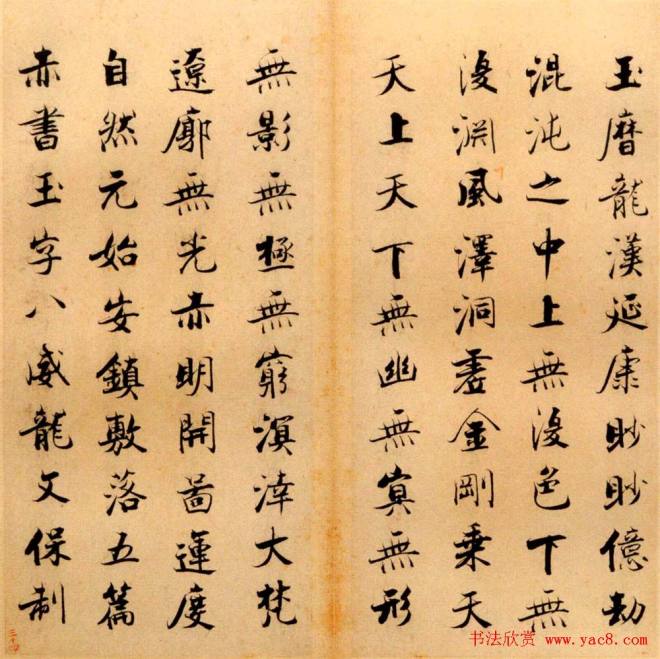 玉曆龍漢延康眇眇億劫
混沌之中上無復色下無
復淵風澤洞虛金剛乘天
天上天下無幽無冥無形
無影無極無窮溟涬大梵
遼廓無光赤明開圖運度
自然元始安鎮敷落五篇
赤書玉字八威龍文保制
三十四
书法欣赏 www.yac8.com